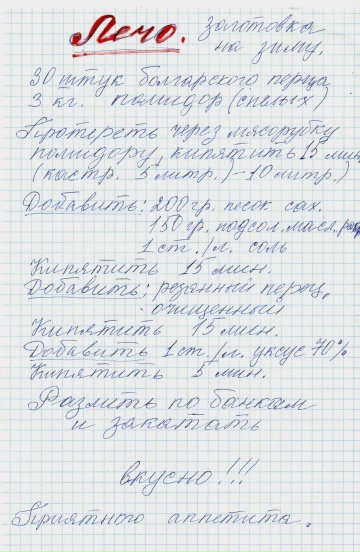 Лечо. заготовка
на зиму.
30 штук болгарского перца
3 кг. помидор (спелых)
Протереть через мясорубку
помидору, кипятить 15 мин
(кастр. 5 литр.) - 10 литр.)
Добавить: 200 гр. песок сах.
150 гр. подсол. масл.
1 ст./л. соль
Кипятить 15 мин.
Добавить: резанный перец,
очищенный
Кипятить 15 мин.
Добавить 1 ст./л. уксус 70%
Кипятить 5 мин.
Разлить по банкам
и закатать
вкусно!!!
Приятного аппетита.